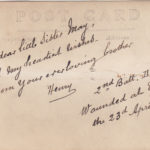 POST CARD
dear little Sister May,
my heartiest wishes
from Your everloving brother
Henry
2nd Batt.
Wounded at
the 23rd Apri